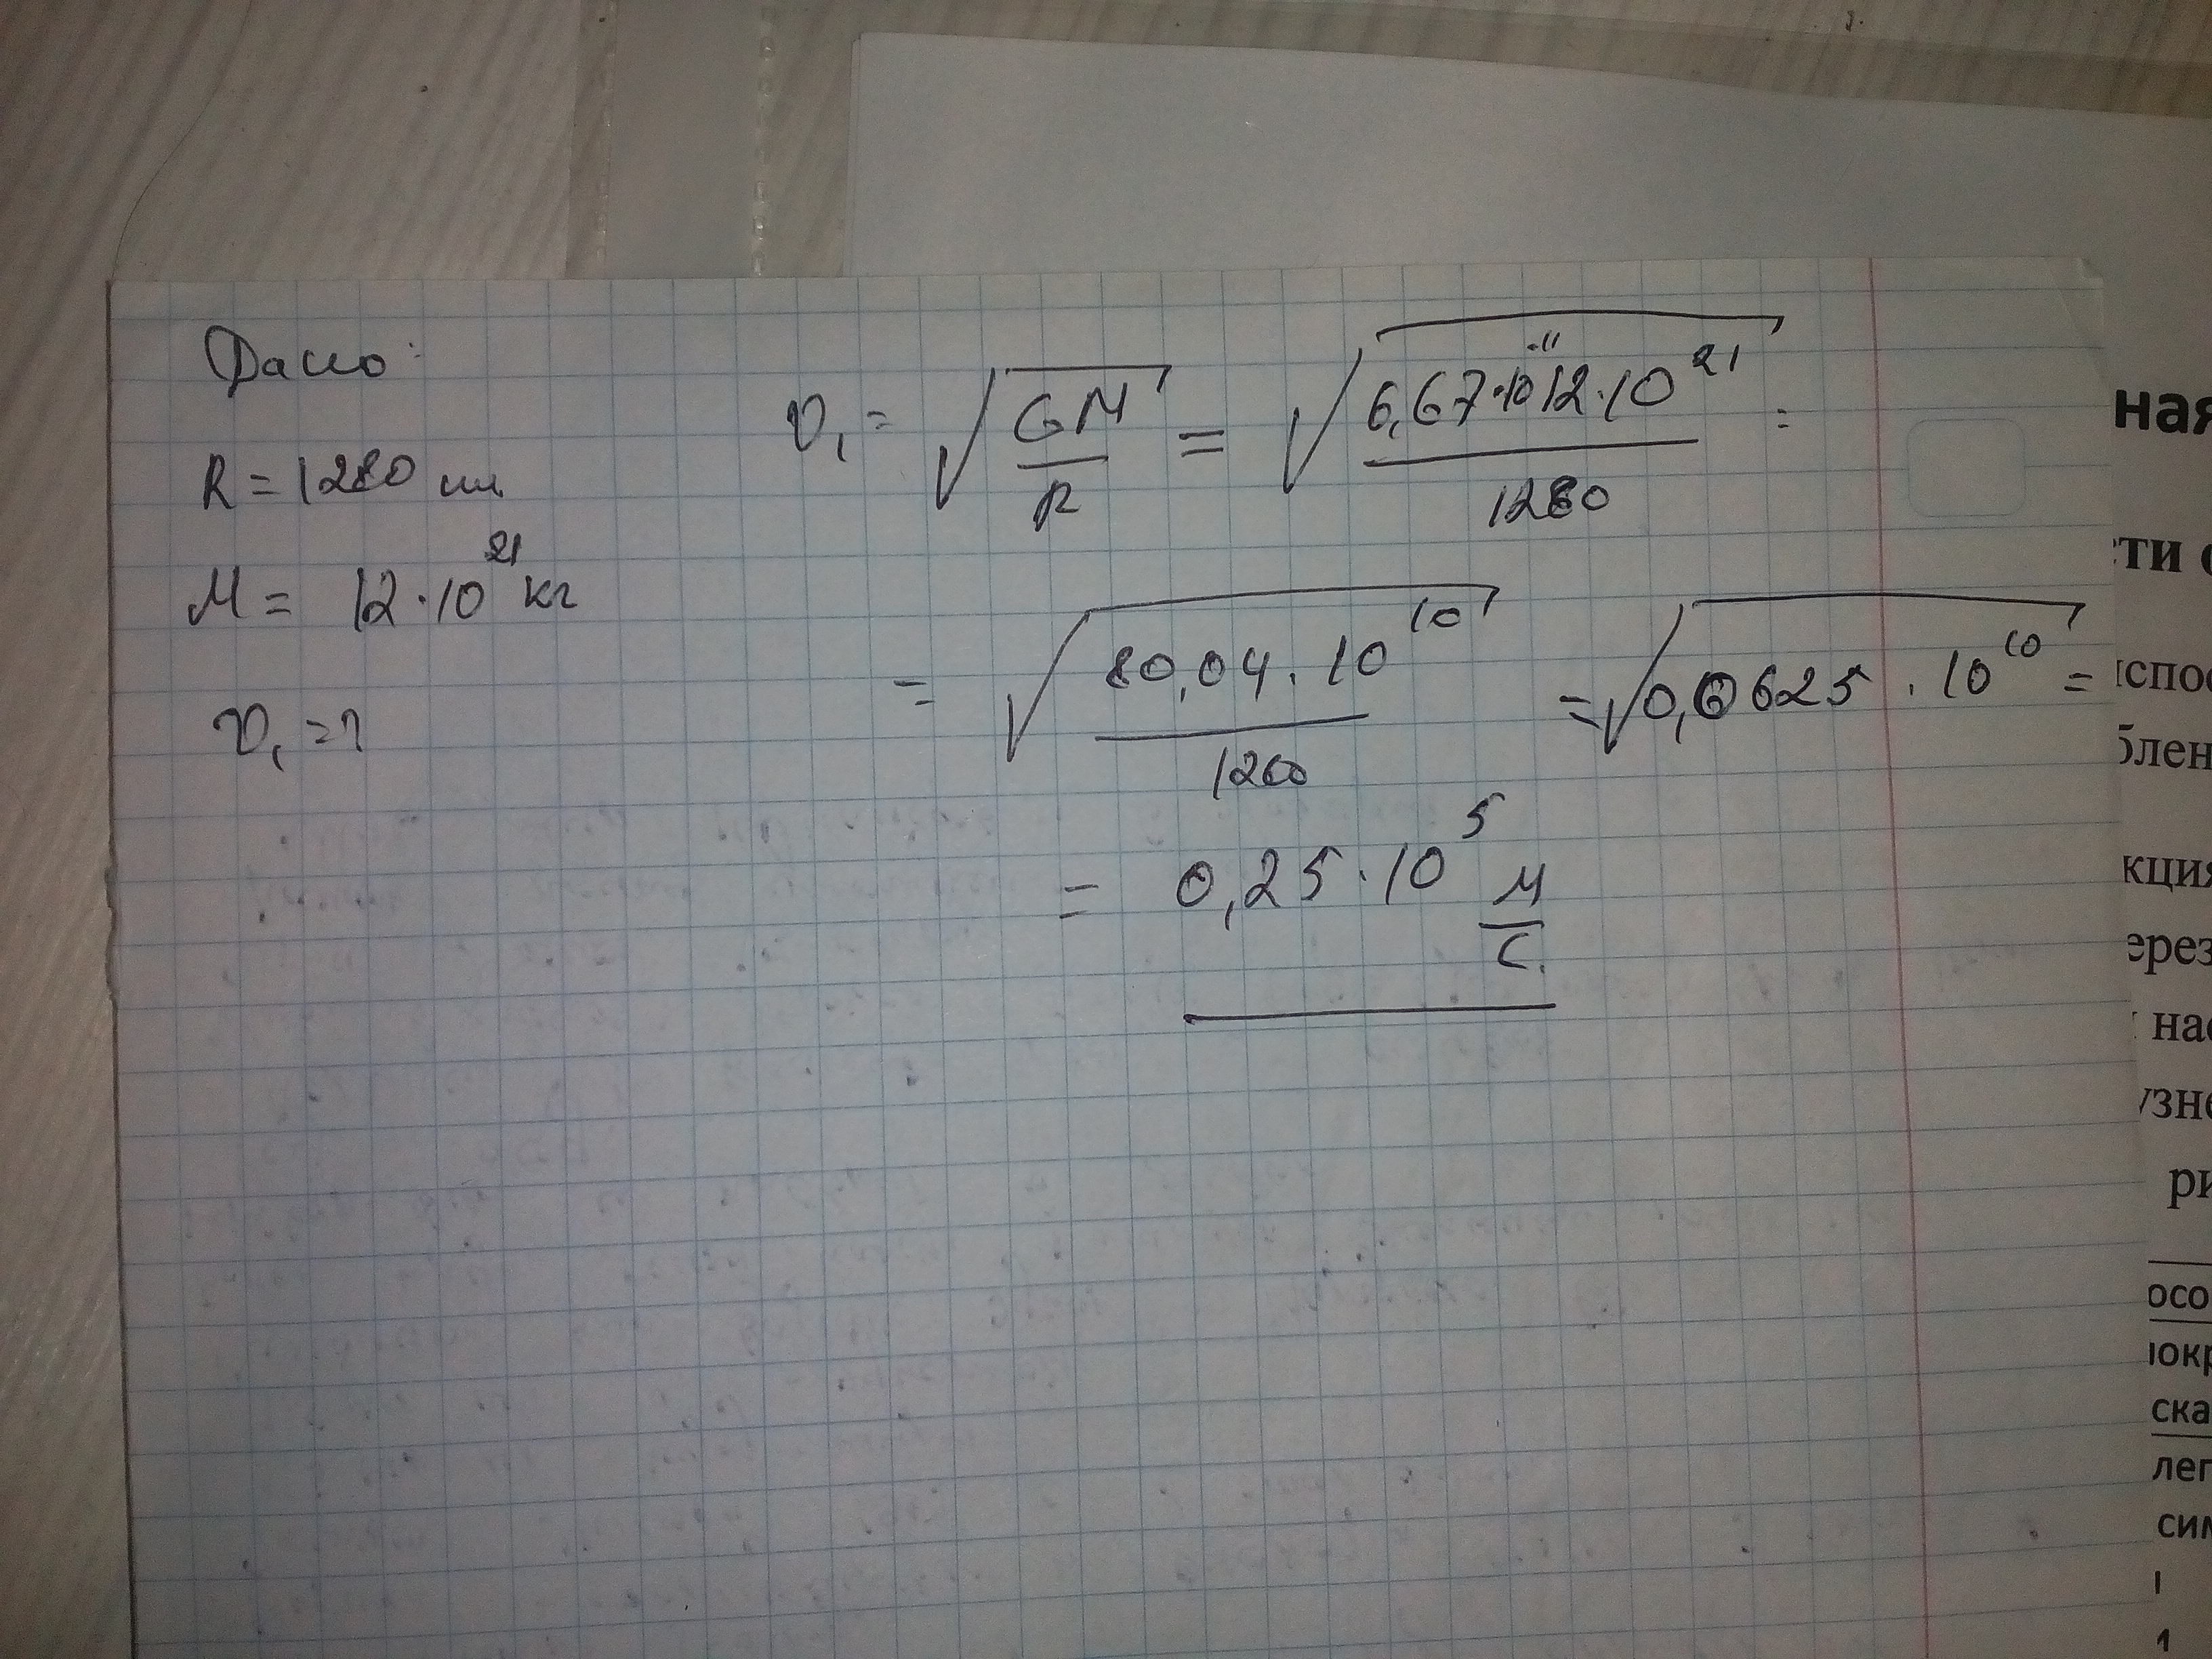 Дано:
R = 1280 км
M = 12·10²¹ кг
v₁ = ?
v₁ = √(GM/R) = √(6,67·10⁻¹¹·12·10²¹/1280) =
= √(80,04·10¹⁰/1280) = √(0,0625·10¹⁰) =
= 0,25·10⁵ м/с.
ная
сти
испо
блен
кция
ерез
нас
узне
ри
осо
покр
ска
лег
сим
1